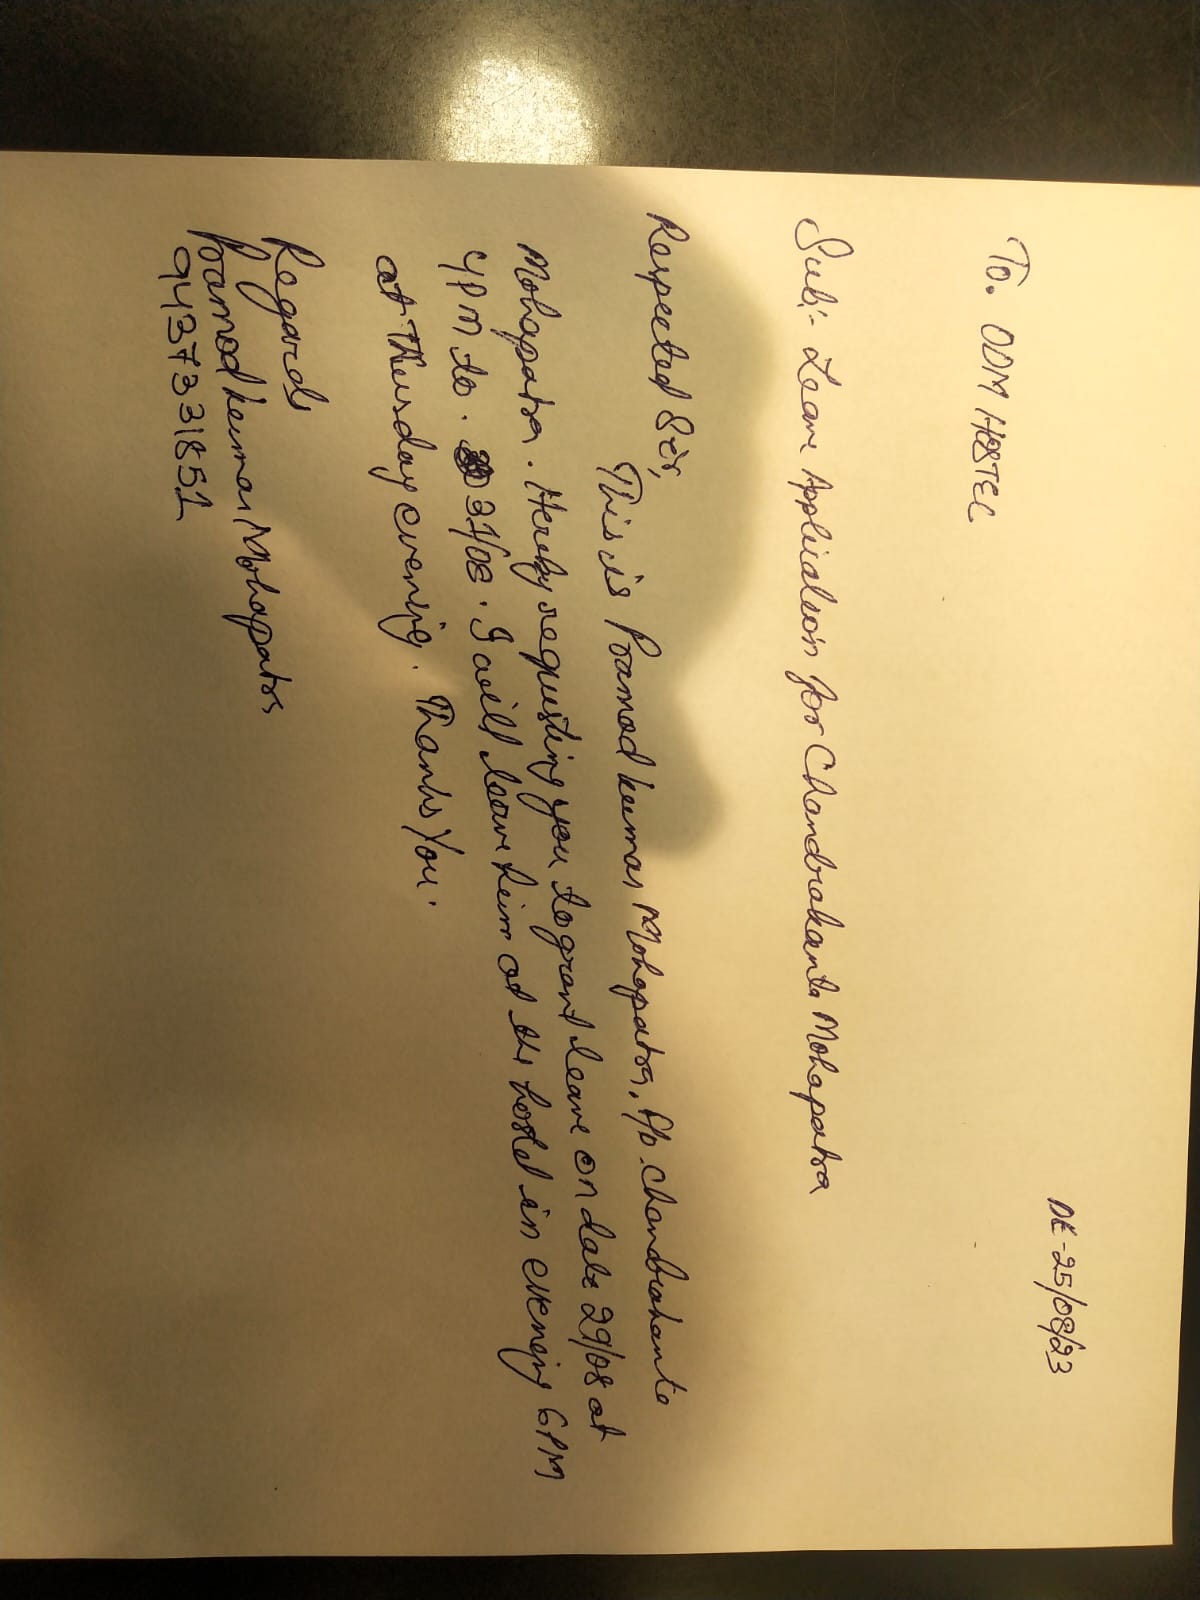 Dt - 25/08/23
To. ODM HOSTEL
Sub:- Leave Application for Chandrakanta Mohapatra
Respected Sir,
This is Pramod kumar Mohapatra, F/o. Chandrakanta
Mohapatra. Hereby requesting you to grant leave on date 29/08 at
4PM to. 31/08. I will leave him at the hostel in evening 6PM
at Thursday evening. Thanks You.
Regards
Pramod kumar Mohapatra
9437331851